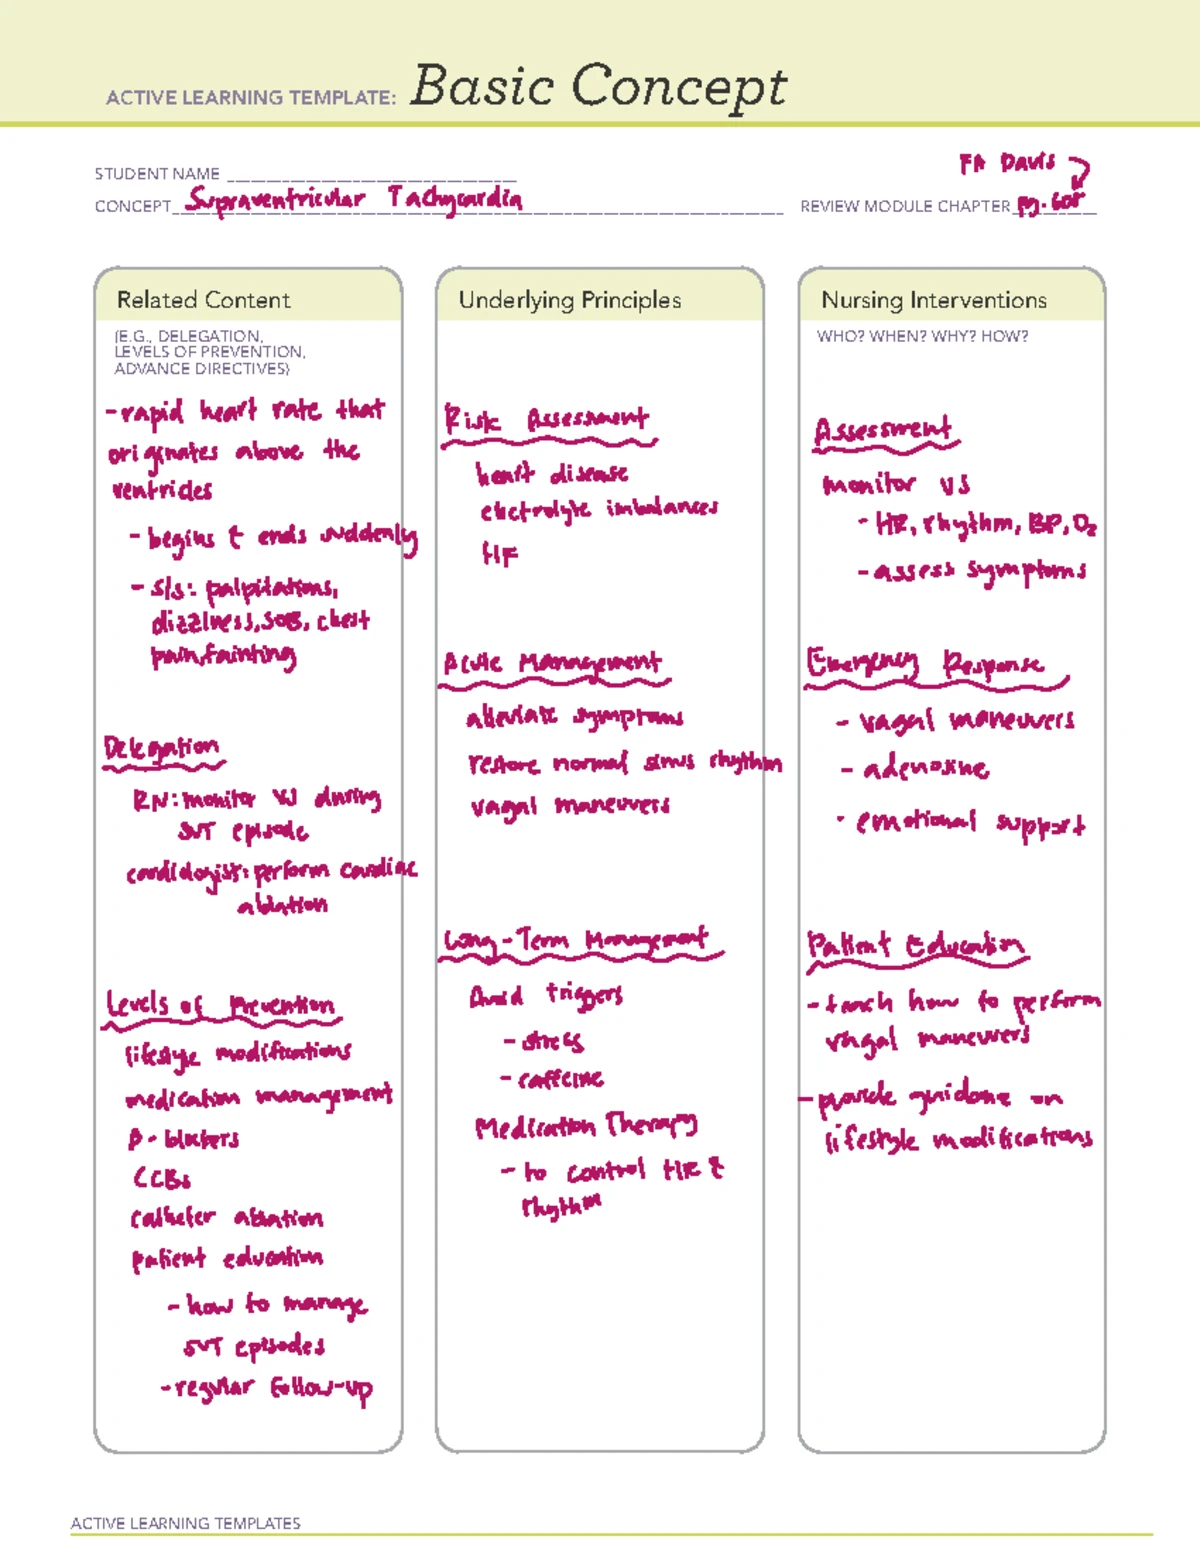 ACTIVE LEARNING TEMPLATE: Basic Concept
STUDENT NAME
FA Davis
CONCEPT Supraventricular Tachycardia
REVIEW MODULE CHAPTER pg. 608
Related Content
(E.G., DELEGATION,
LEVELS OF PREVENTION,
ADVANCE DIRECTIVES)
-rapid heart rate that
originates above the
ventricles
- begins & ends suddenly
- S/S: palpitations,
dizziness, SOB, chest
pain, fainting
Delegation
RN: monitor VS during
SVT episode
cardiologist: perform cardiac
ablation
Levels of Prevention
lifestyle modifications
medication management
β-blockers
CCBs
catheter ablation
patient education
- how to manage
SVT episodes
- regular follow-up
Underlying Principles
Risk Assessment
heart disease
electrolyte imbalances
HF
Acute Management
alleviate symptoms
restore normal sinus rhythm
vagal maneuvers
Long-Term Management
Avoid triggers
- stress
- caffeine
Medication Therapy
- to control HR &
rhythm
Nursing Interventions
WHO? WHEN? WHY? HOW?
Assessment
monitor VS
- HR, rhythm, BP, O2
- assess symptoms
Emergency Response
- vagal maneuvers
- adenosine
- emotional support
Patient Education
- teach how to perform
vagal maneuvers
- provide guidance on
lifestyle modifications
ACTIVE LEARNING TEMPLATES